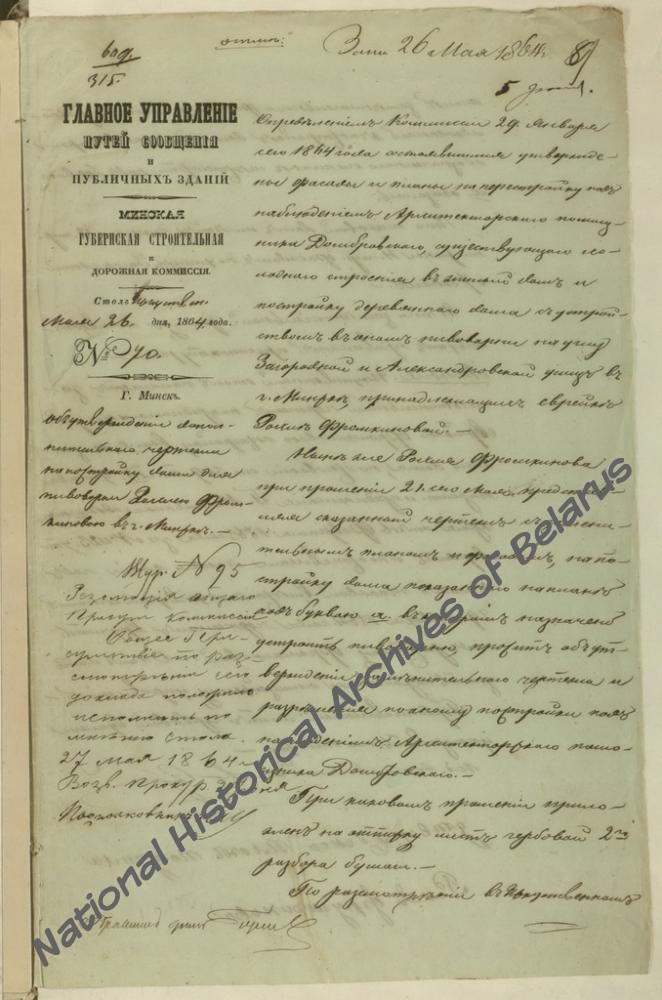 Зап. 26 Мая 1864 г.
315.
ГЛАВНОЕ УПРАВЛЕНІЕ
ПУТЕЙ СООБЩЕНІЯ
И
ПУБЛИЧНЫХЪ ЗДАНІЙ
МИНСКАЯ
ГУБЕРНСКАЯ СТРОИТЕЛЬНАЯ
И
ДОРОЖНАЯ КОММИССІЯ.
Столъ
Мая 26 дня, 1864 года.
№
Г. Минскъ.
объ утвержденіи допол-
нительнаго чертежа
на постройку дома для
пивоварни Фрем-
киновою въ г. Минскѣ.—
Жур. № 95
Резолюція общаго
Присут. Коммиссіи
Общее При-
сутствіе по раз-
смотрѣніи сего
доклада положило
исполнить по
мнѣнію стола.
27 мая 1864
Подполковникъ
5
Опредѣленіемъ Коммиссіи 29 Января
сего 1864 года утвержде-
ны фасады и планы на перестройку подъ
наблюденіемъ Архитекторскаго помощ-
ника Домбровскаго, существующаго хо-
лоднаго строенія въ жилой домъ и
постройку деревяннаго дома съ устрой-
ствомъ въ ономъ пивоварни на углу
Загородной и Александровской улицъ въ
г. Минскѣ, принадлежащихъ еврейкѣ
Фромкиновой.—
Нынѣ же Фромкинова
при прошеніи 21 сего Мая, представ-
ляя сказанный чертежъ съ дополни-
тельнымъ планомъ и фасадомъ, на по-
стройку дома показаннаго на планѣ
подъ буквою а. въ которомъ назначено
устроить пивоварню, проситъ объ ут-
вержденіи дополнительнаго чертежа и
разрѣшеніи по оному постройки подъ
наблюденіемъ Архитекторскаго помо-
щника Домбровскаго.—
При каковомъ прошеніи прило-
женъ на листъ гербовой 2го
разбора бумаги.—
По разсмотрѣніи въ Искуственномъ
National Historical Archives of Belarus